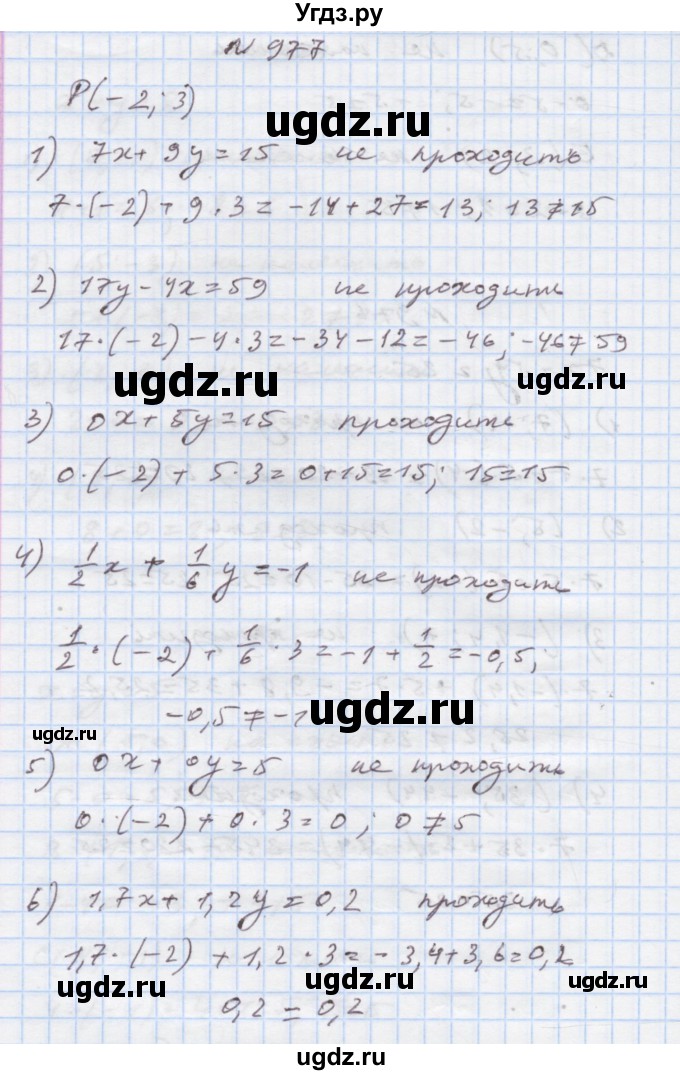 Угдз.ру
№ 977
P(-2; 3)
ugdz.ru
1) 7x + 9y = 15 не проходить
7·(-2) + 9·3 = -14 + 27 = 13; 13 ≠ 15
2) 17y - 4x = 59 не проходить
17·(-2) - 4·3 = -34 - 12 = -46; -46 ≠ 59
ugdz.ru ugdz.ru
3) 0x + 5y = 15 проходить
0·(-2) + 5·3 = 0 + 15 = 15; 15 = 15
4) 1/2 x + 1/6 y = -1 не проходить
1/2·(-2) + 1/6·3 = -1 + 1/2 = -0,5;
-0,5 ≠ -1
ugdz.ru ugdz.ru
5) 0x + 0y = 5 не проходить
0·(-2) + 0·3 = 0; 0 ≠ 5
6) 1,7x + 1,2y = 0,2 проходить
1,7·(-2) + 1,2·3 = -3,4 + 3,6 = 0,2
ugdz.ru ugdz.ru
0,2 = 0,2
ugdz.ru